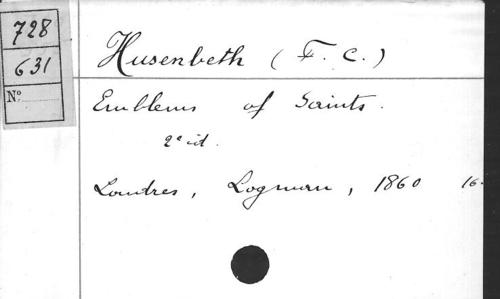 728
631
N°
Husenbeth (F. C.)
Emblems of Saints.
2e éd.
Londres, Logman, 1860 16-